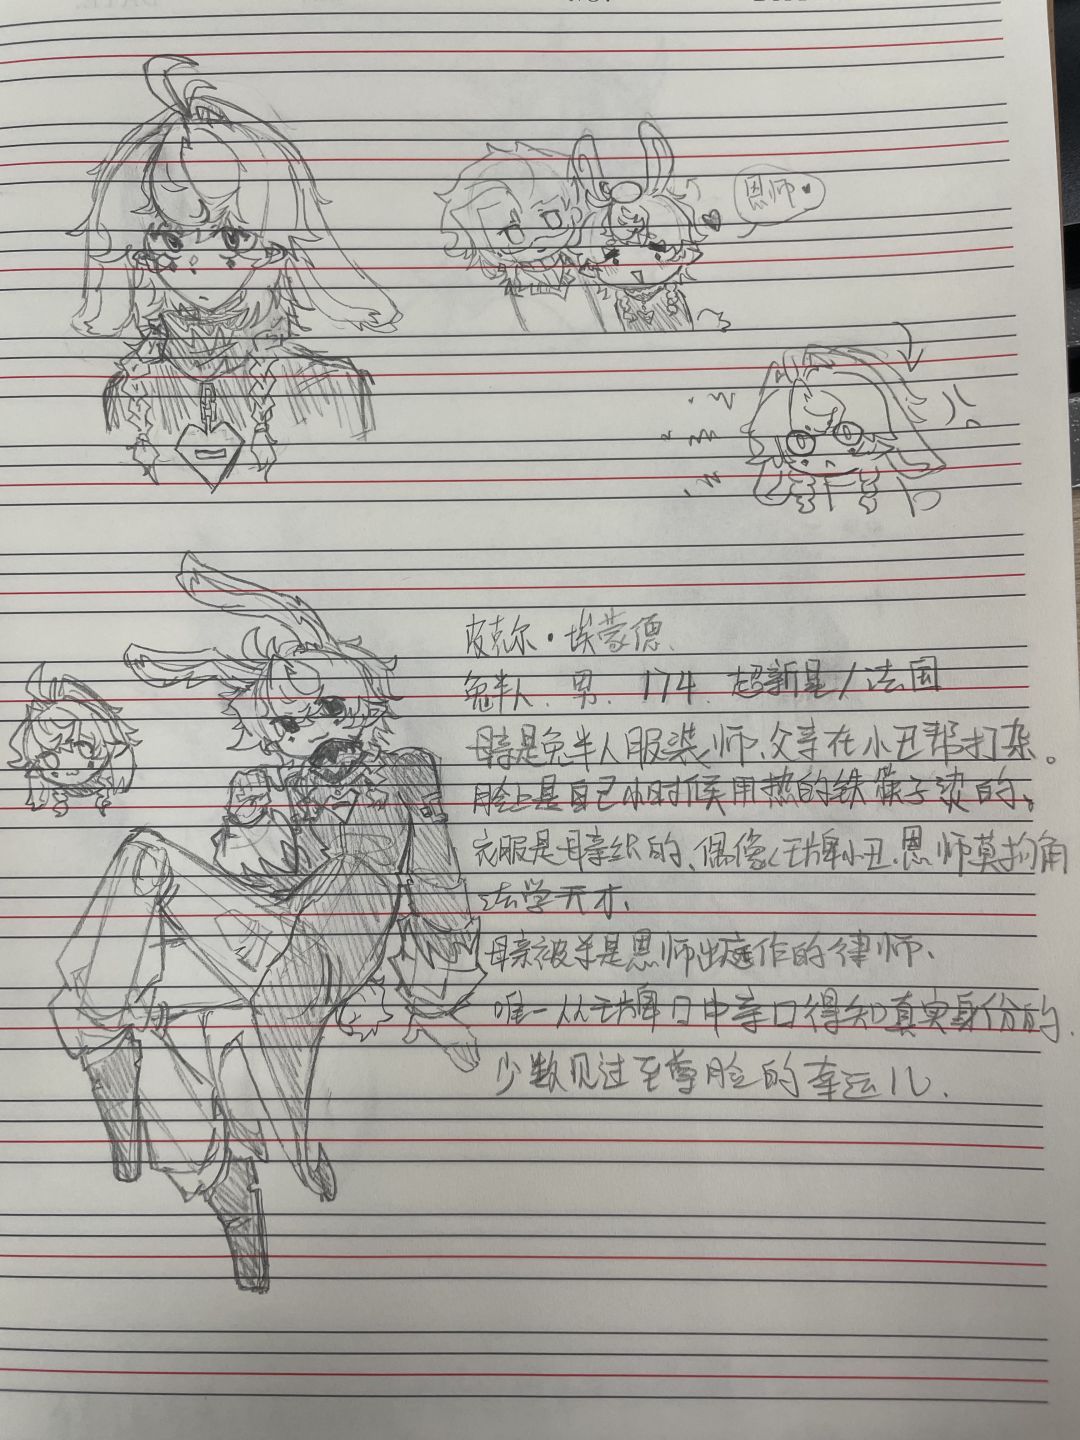 恩师
皮克尔·埃蒙德.
兔半人. 男. 174. 超新星/法国
母亲是兔半人服装师、父亲在小丑帮打杂。
脸上是自己小时候用热的铁筷子烫的。
衣服是母亲织的、偶像（王牌小丑.恩师莫扚角
法学天才.
母亲被杀是恩师出庭作的律师.
唯一从王牌口中亲口得知真实身份的.
少数见过至尊脸的幸运儿.